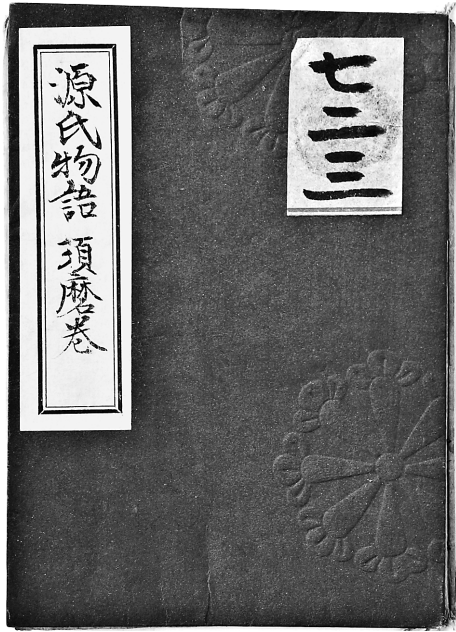 七二三
源氏物語 須磨巻